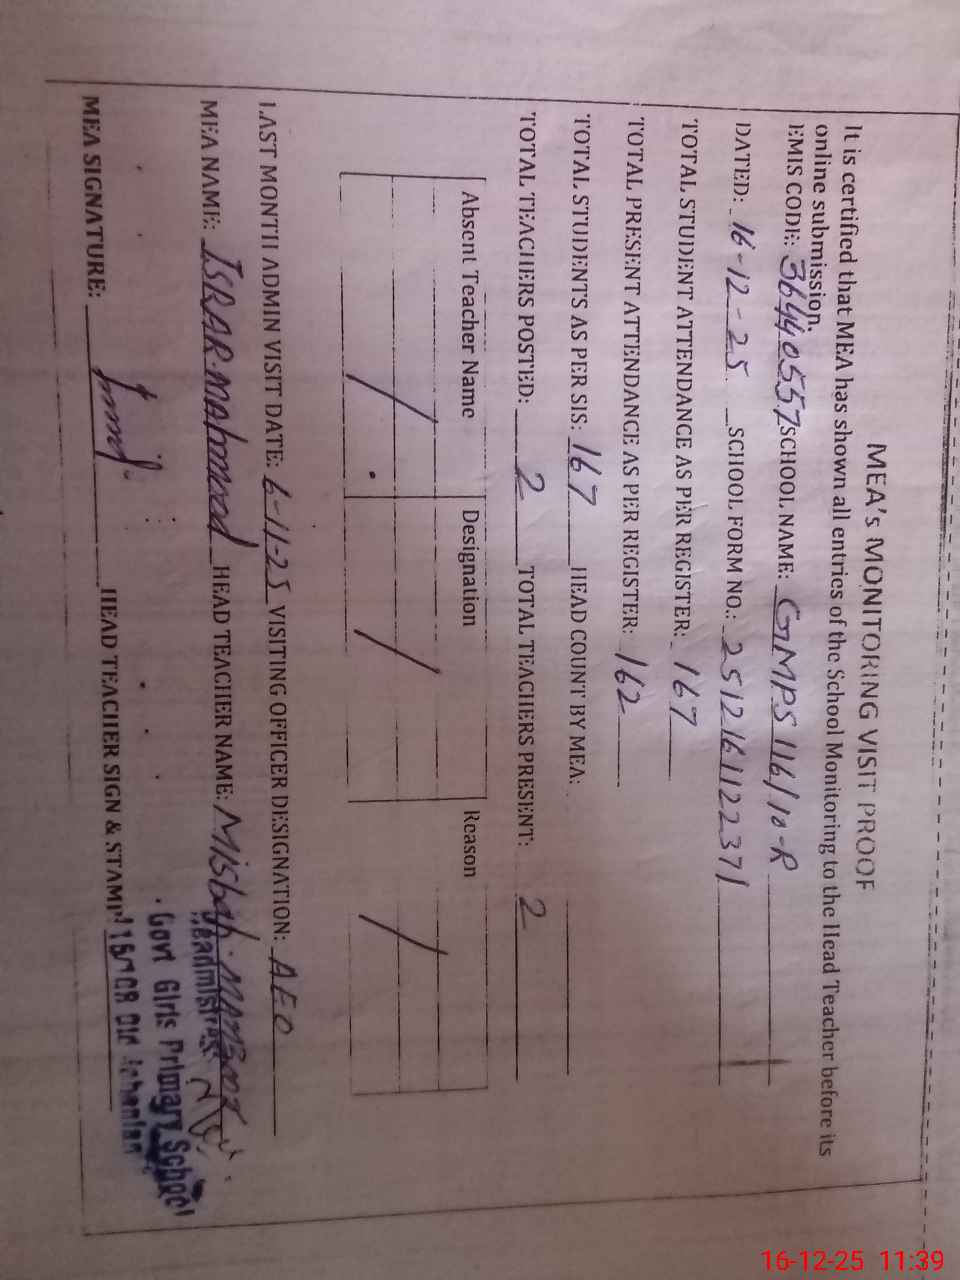 MEA's MONITORING VISIT PROOF
It is certified that MEA has shown all entries of the School Monitoring to the Head Teacher before its
online submission.
EMIS CODE: 36440557 SCHOOL NAME: GMPS 116/10-R
DATED: 16-12-25 SCHOOL FORM NO.: 251216112371
TOTAL STUDENT ATTENDANCE AS PER REGISTER: 167
TOTAL PRESENT ATTENDANCE AS PER REGISTER: 162
TOTAL STUDENTS AS PER SIS: 167 HEAD COUNT BY MEA:
TOTAL TEACHERS POSTED: 2 TOTAL TEACHERS PRESENT: 2
Absent Teacher Name Designation Reason
/ / /
LAST MONTH ADMIN VISIT DATE: 6-11-25 VISITING OFFICER DESIGNATION: AEO
MEA NAME: ISRAR MAhmood HEAD TEACHER NAME: Misbah
Headmistress
Govt Girls Primary School
MEA SIGNATURE: HEAD TEACHER SIGN & STAMP:
16-12-25 11:39